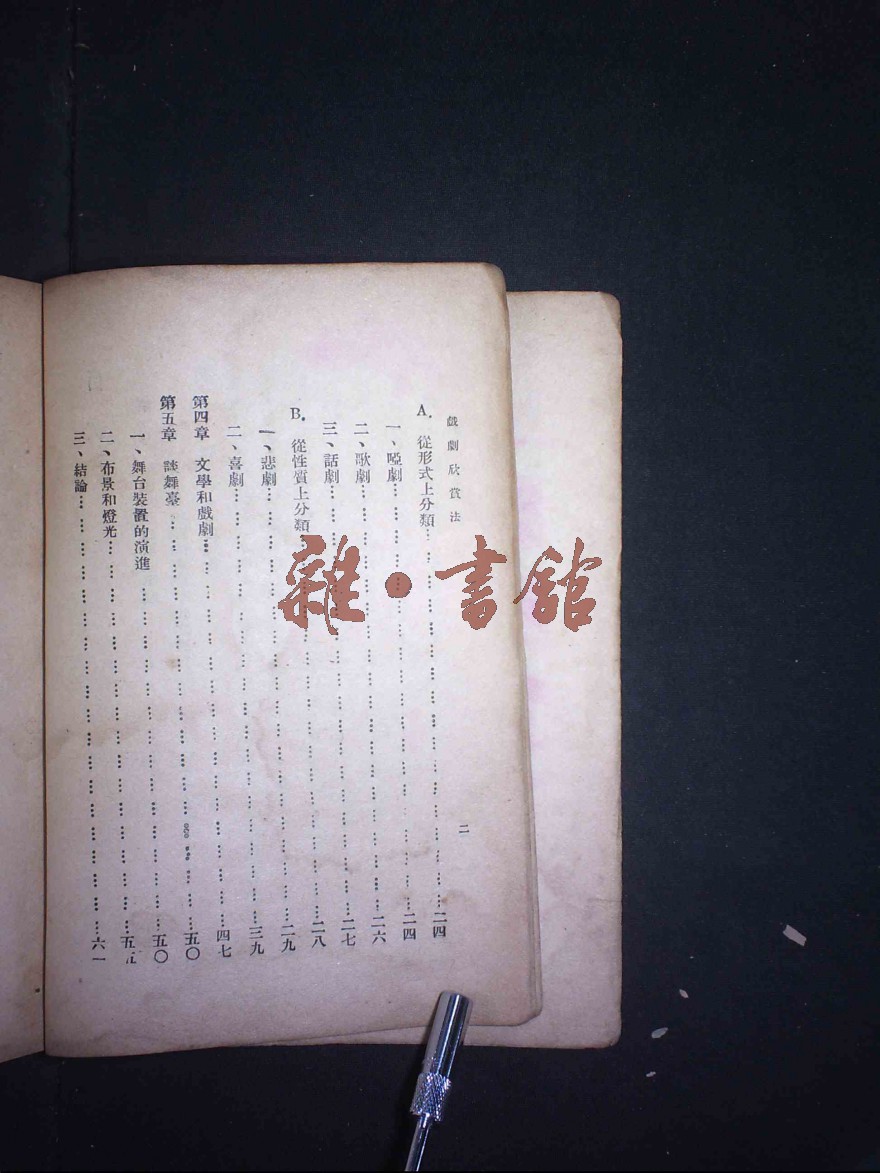 戲劇欣賞法
二
A. 從形式上分類……二四
一、啞劇……二四
二、歌劇……二六
三、話劇……二七
B. 從性質上分類……二八
一、悲劇……二九
二、喜劇……三九
第四章 文學和戲劇……四七
第五章 談舞臺……五〇
一、舞台裝置的演進……五〇
二、布景和燈光……五五
三、結論……六一
雜·書館